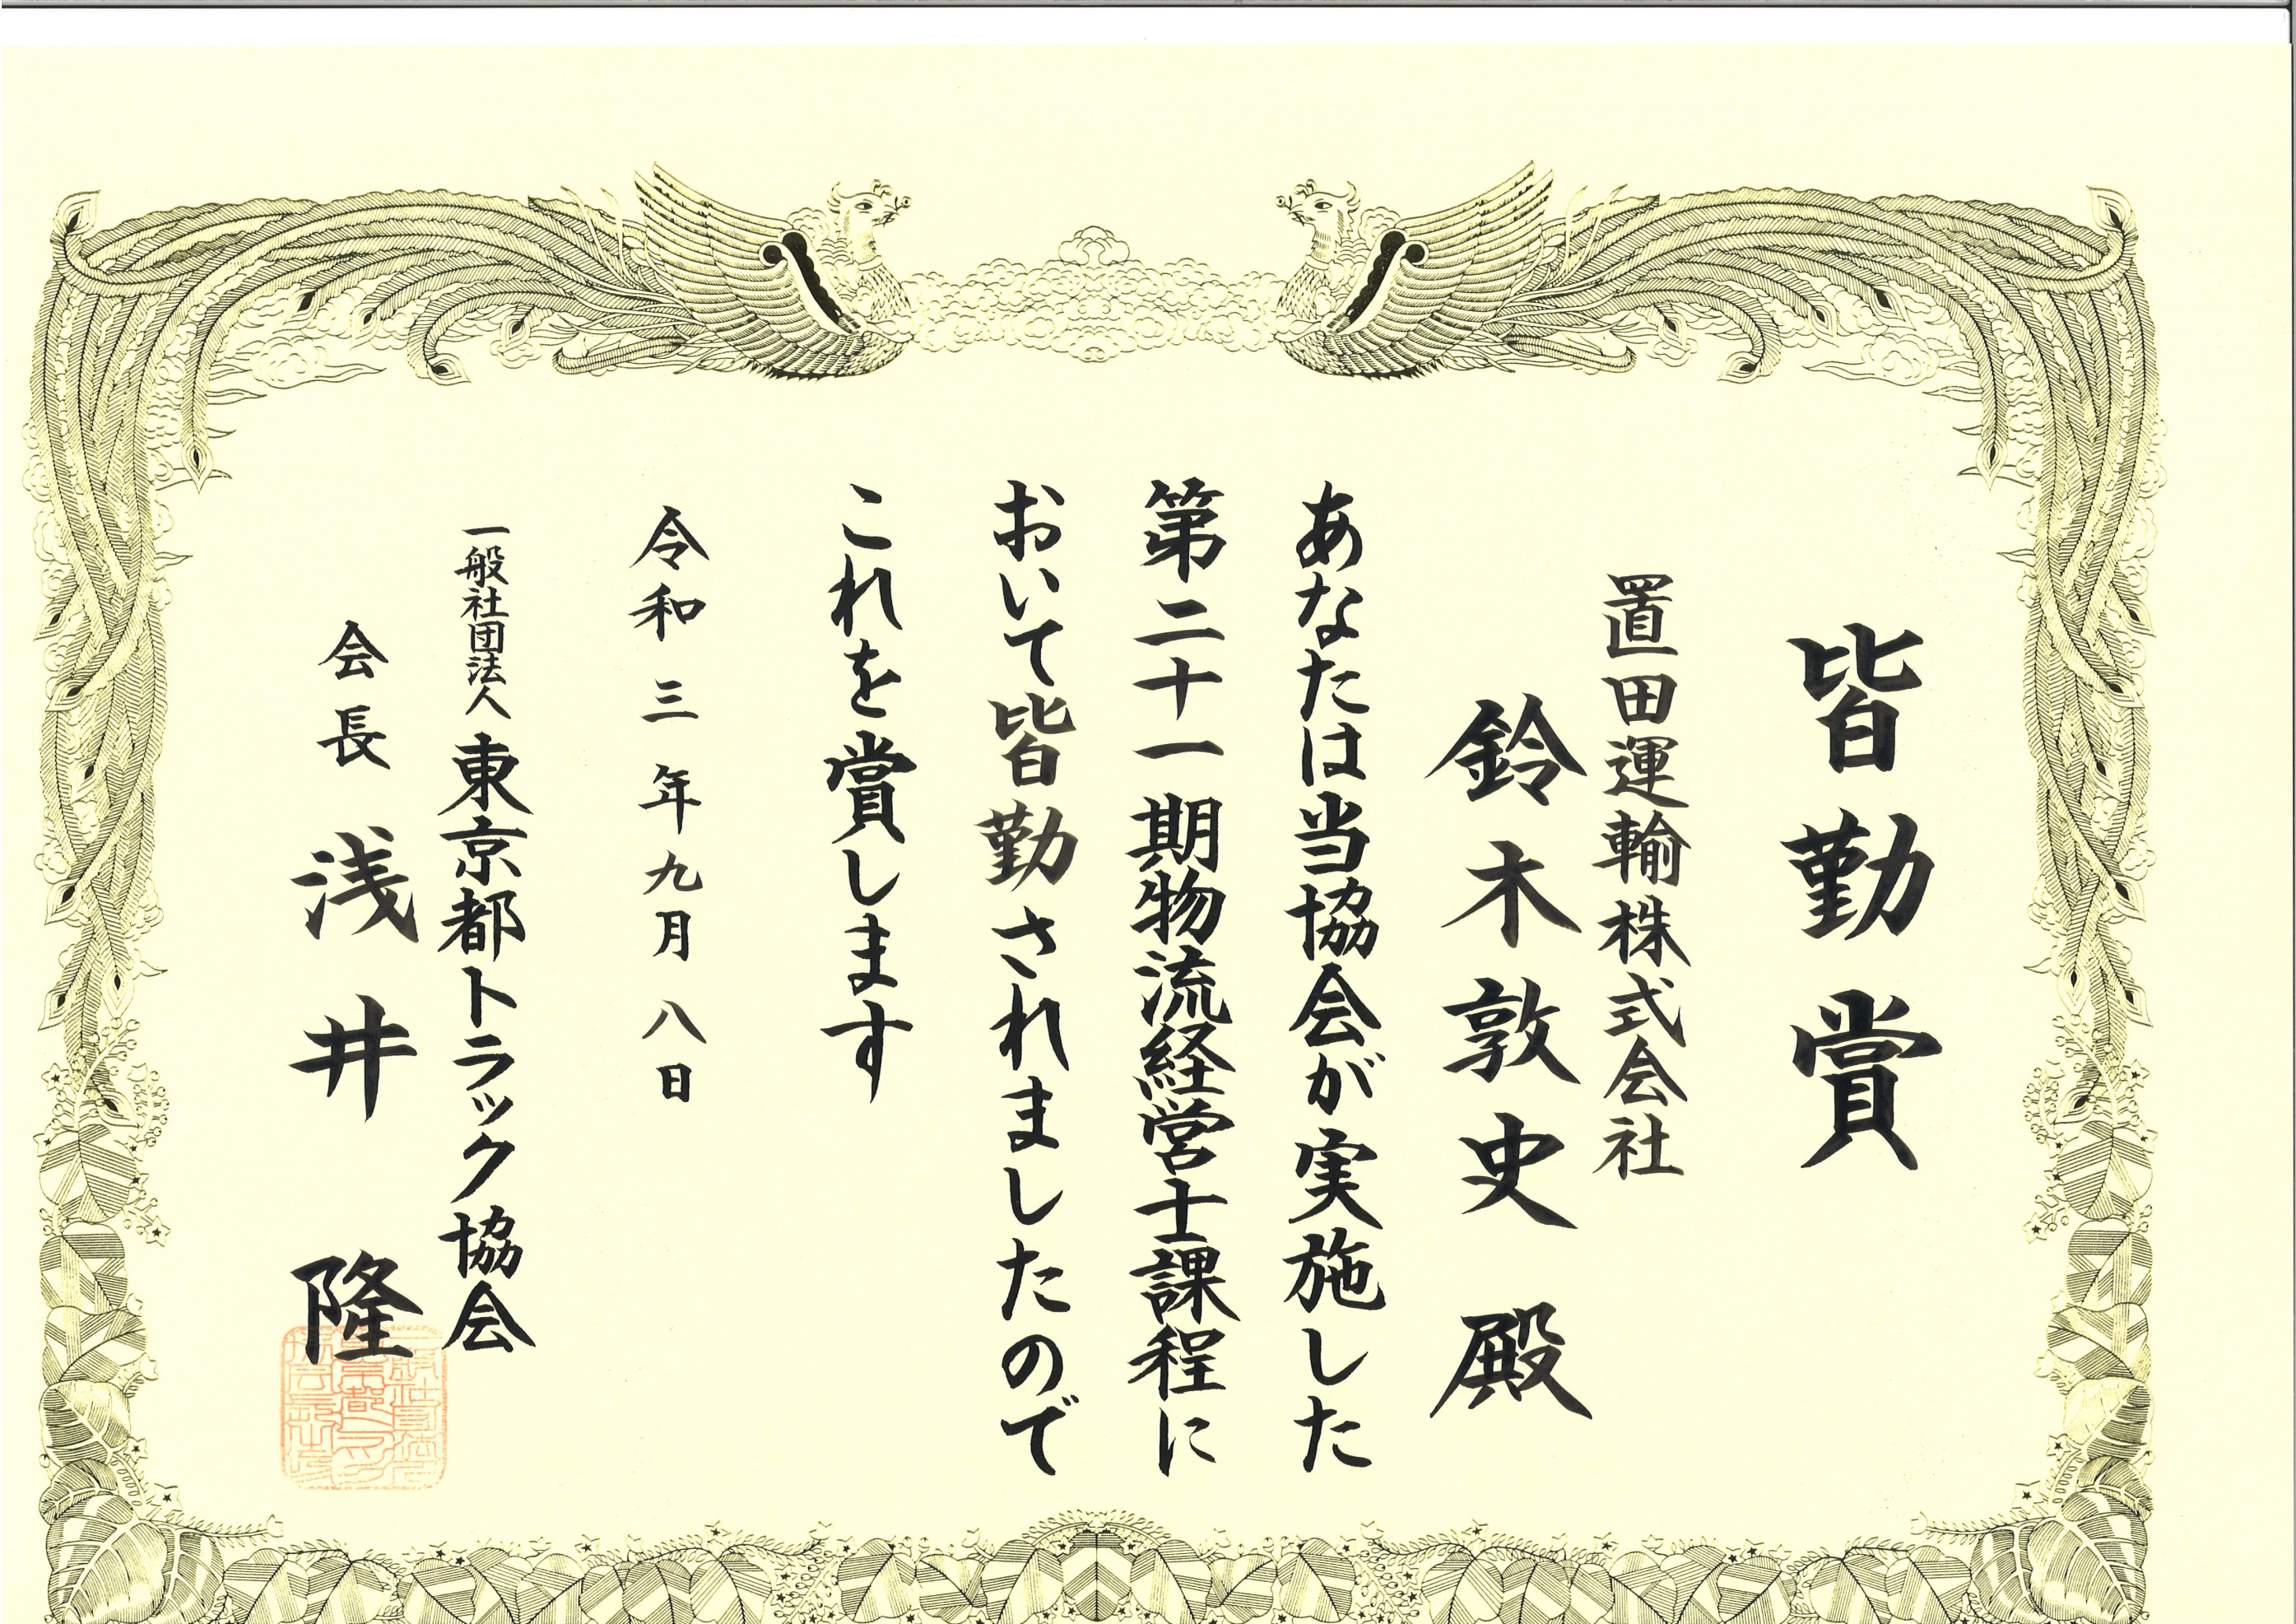 皆勤賞
置田運輸株式会社
鈴木敦史 殿
あなたは当協会が実施した
第二十一期物流経営士課程に
おいて皆勤されましたので
これを賞します
令和三年九月八日
一般社団法人 東京都トラック協会
会長 浅井 隆